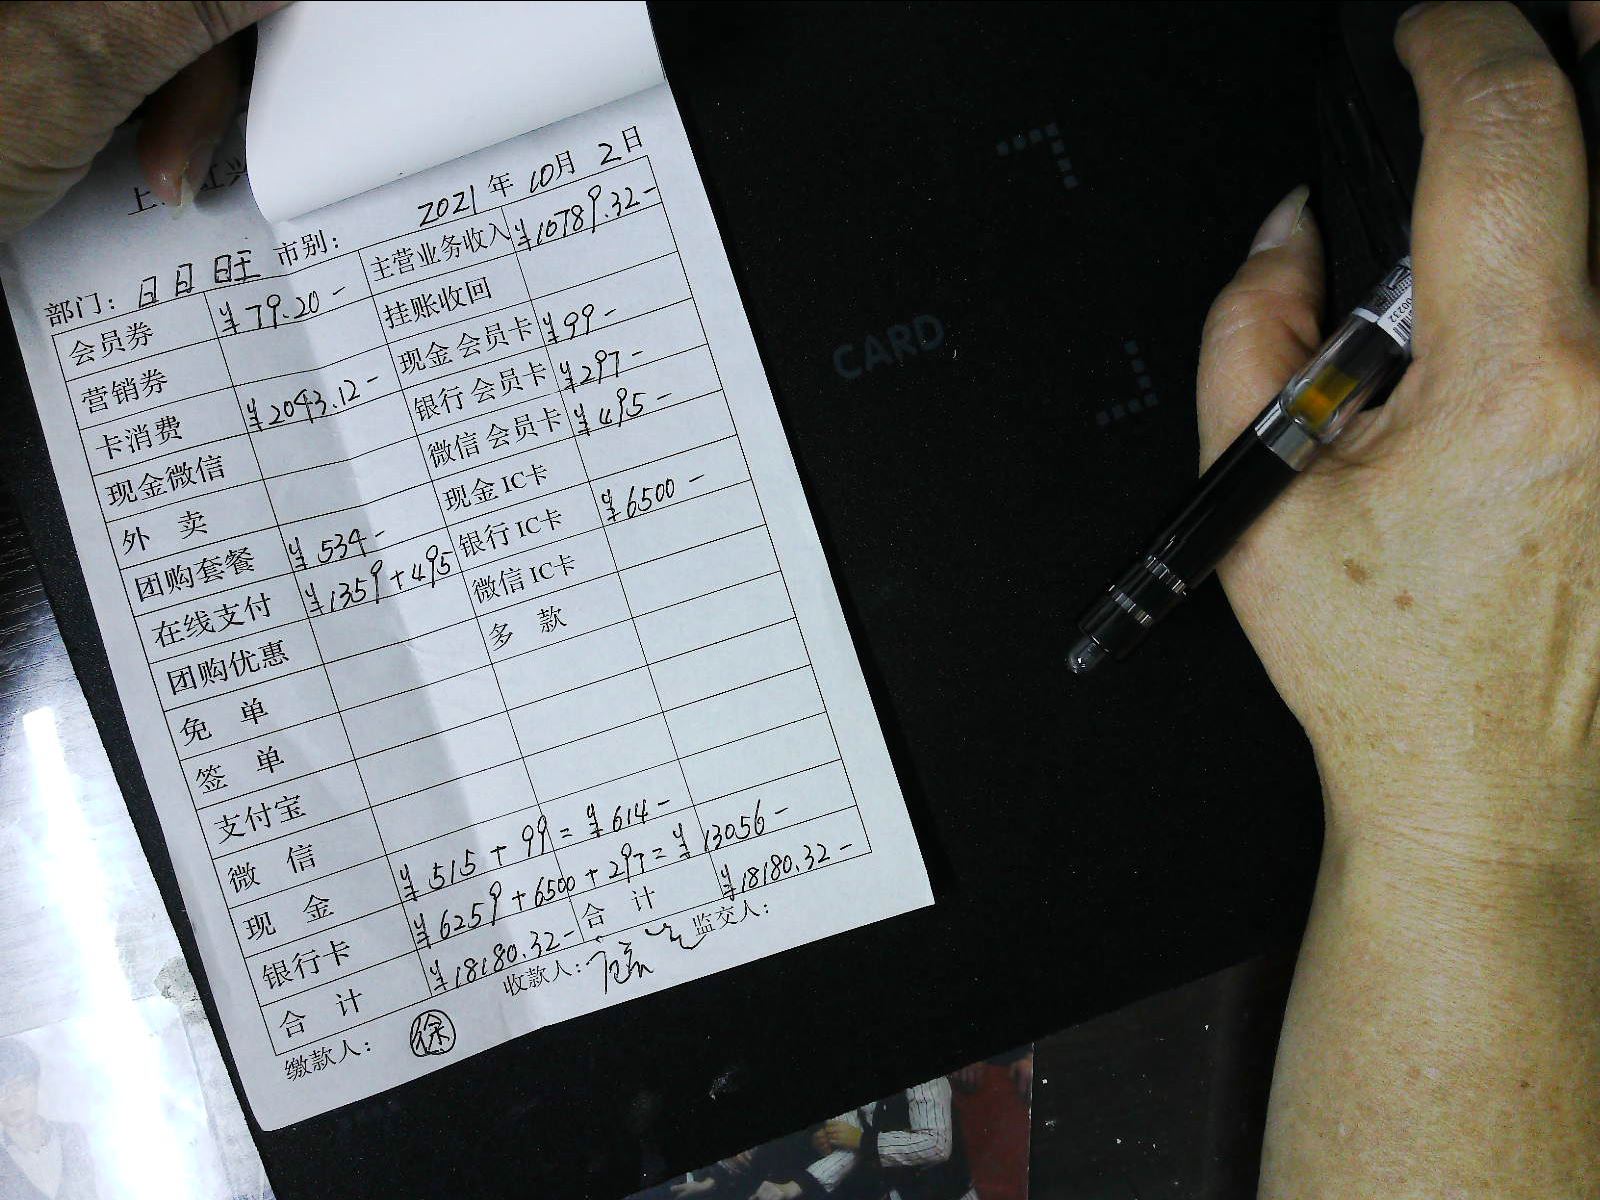 上 红兴
2021年10月2日
部门：日日旺 市别：
会员券 ¥79.20- 主营业务收入 ¥10789.32-
营销券 挂账收回
卡消费 ¥2043.12- 现金会员卡 ¥99-
现金微信 银行会员卡 ¥297-
外卖 微信会员卡 ¥495-
团购套餐 ¥534- 现金IC卡
在线支付 ¥1359+495 银行IC卡 ¥6500-
团购优惠 微信IC卡
免单 多款
签单
支付宝
微信
现金 ¥515+99=¥614-
银行卡 ¥6259+6500+297=¥13056-
合计 ¥18180.32- 合计 ¥18180.32-
缴款人：徐 收款人： 监交人：
CARD
00232